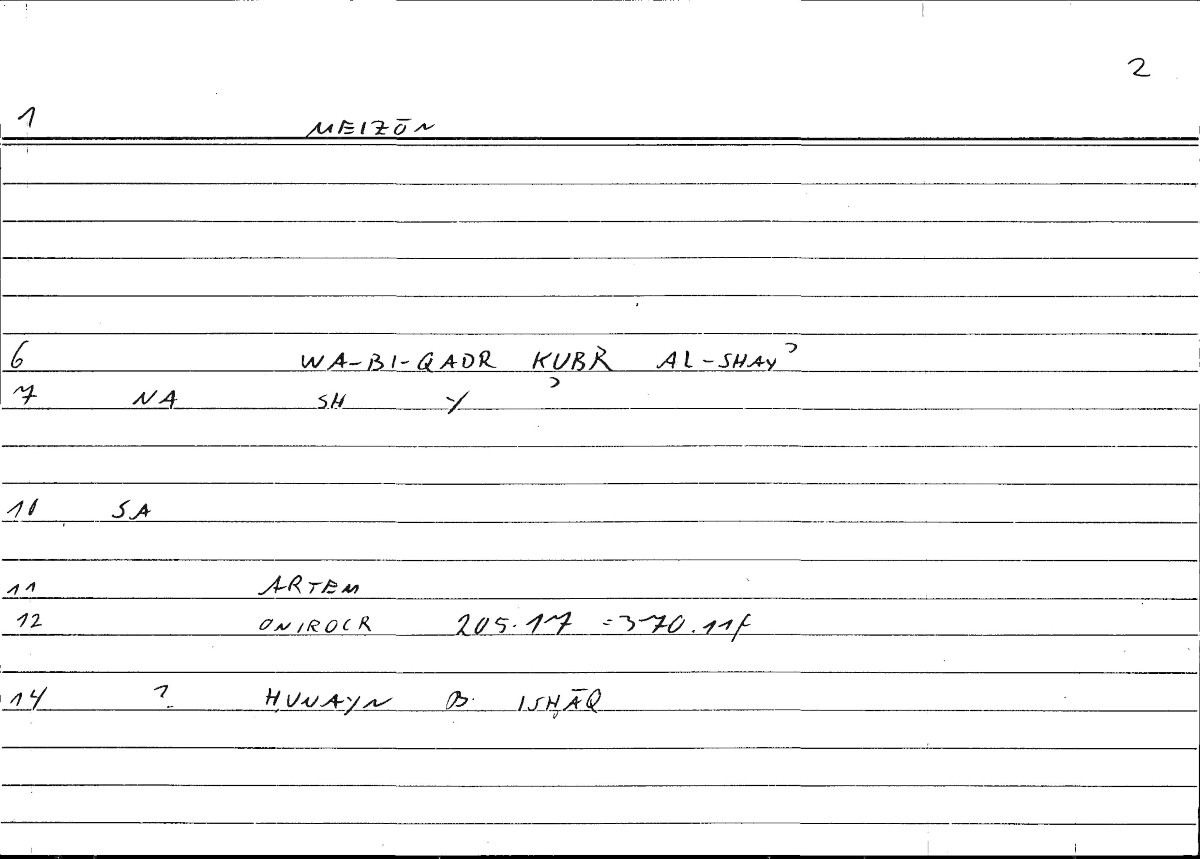 2
1 MEIZŌN
6 WA-BI-QADR KUBR AL-SHAYʾ
7 NA SH ʾ Y
10 SA
11 ARTEM
12 ONIROCR 205.17 = 370.11f
14 ? ḤUNAYN B. ISḤĀQ